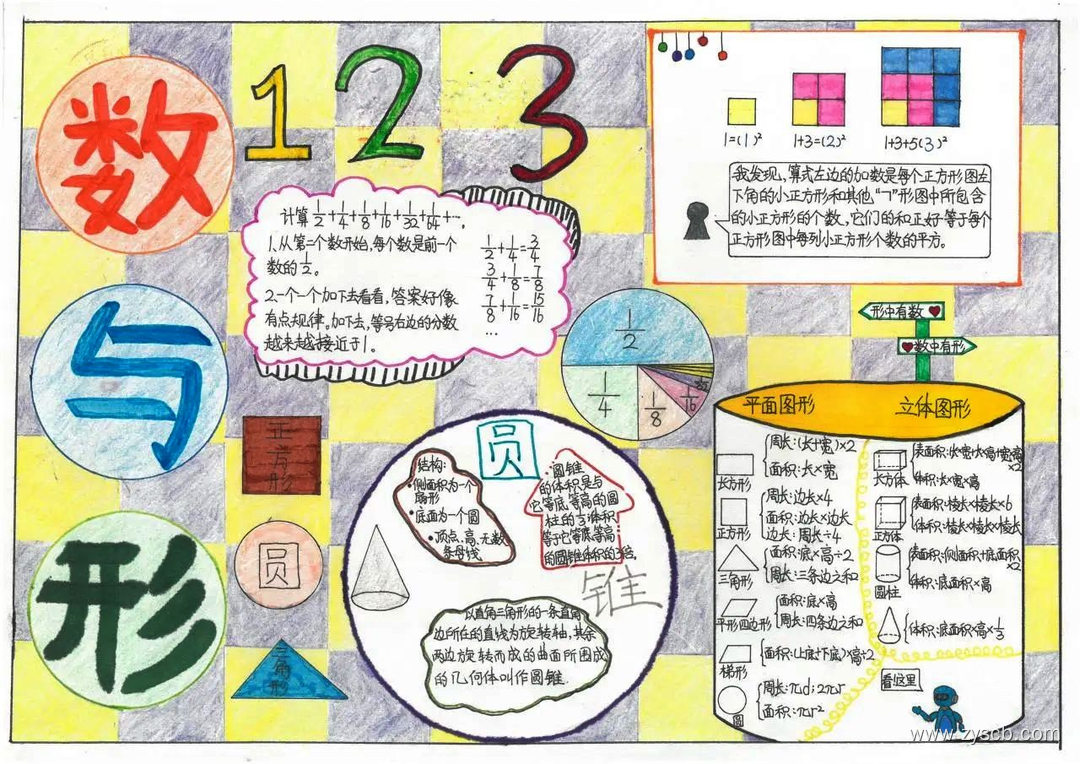 数
与
形
1 2 3
计算1/2+1/4+1/8+1/16+1/32+1/64+…。
1、从第二个数开始,每个数是前一个
数的1/2。
2、一个一个加下去看看,答案好像
有点规律。加下去,等号右边的分数
越来越接近于1。
1/2+1/4=3/4
3/4+1/8=7/8
7/8+1/16=15/16
…
1=(1)²
1+3=(2)²
1+3+5(3)²
我发现,算式左边的加数是每个正方形图左
下角的小正方形和其他“7”形图中所包含
的小正方形的个数,它们的和正好等于每个
正方形图中每列小正方形个数的平方。
1/2
1/4
1/8
1/16
1/32
形中有数
数中有形
正方形
圆
三角形
圆
锥
结构:
•侧面积为一个
扇形
•底面为一个圆
•顶点、高、无数
条母线
圆锥
的体积是与
它等底、等高的圆
柱的1/3体积
等于它等底、等高
的圆锥体积的3倍
以直角三角形的一条直角
边所在的直线为旋转轴,其余
两边旋转而成的曲面所围成
的几何体叫作圆锥.
平面图形
长方形
周长:(长+宽)×2
面积:长×宽
正方形
周长:边长×4
面积:边长×边长
边长:周长÷4
三角形
面积:底×高÷2
周长:三条边之和
平行四边形
面积:底×高
周长:四条边之和
梯形
面积:(上底+下底)×高÷2
圆
周长:πd;2πr
面积:πr²
立体图形
长方体
体积:长×宽×高
正方体
表面积:棱长×棱长×6
体积:棱长×棱长×棱长
圆柱
表面积:侧面积+底面积×2
体积:底面积×高
体积:底面积×高×1/3
看这里
www.zyscb.com